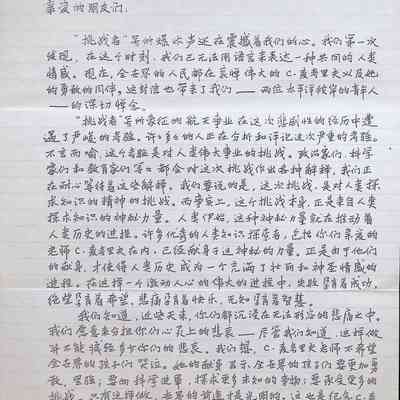 亲爱的朋友们:
“挑战者”号的爆炸声还在震撼着我们的心。我们第一次
发现,在这个时刻,我们已无法用语言来表达一种共同的人类
情感。现在,全世界的人民都在哀悼伟大的C·麦考里夫以及她
的勇敢的同伴。这封信也带来了我们——两位太平洋彼岸的青年人
——的深切悼念。
“挑战者”号所象征的航天事业在这次悲剧性的经历中遭
遇了严峻的考验。许多的人正在分析和评论这次严重的考验。
不言而喻,这个考验是对人类伟大事业的挑战。政治家们、科学
家们和教育家们等都会对这次挑战作出各种解释,我们正
在耐心等待着这些解释。我们要说的是,这次挑战,是对人类探
求知识的精神的挑战。而事实上,这个挑战本身,正是来自人类
探求知识的神秘力量。人类伊始,这种神秘力量就在推动着
人类历史的进程。许多优秀的人类知识探索者,包括你们亲爱的
老师C·麦考里夫在内,已经献身于这神秘的力量。正是由于他们
的献身,才使得人类历史成为一个充满了壮丽和神圣情感的
进程。在这样一个激动人心的伟大的进程中,失败孕育着成功,
绝望孕育着希望,悲痛孕育着快乐,无知孕育着智慧。
我们知道,这些天来,你们都沉浸在无法形容的悲痛之中。
我们愿意来分担你们心灵上的悲哀——尽管我们知道,这样做
并不能减轻多少你们的悲哀。我们想,C·麦考里夫老师不希望
全世界的孩子们哭泣。她的献身昭示全世界的孩子们要更加勇
敢,坚强;要向科学进军,探求更多未知的事物;要承受更多的
挑战。只有这样做,世界的前途才是光明的。这也是纪念C·麦